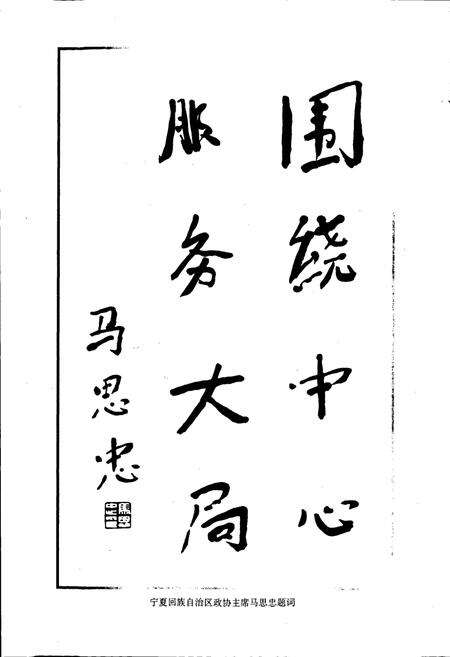 围绕中心
服务大局
马思忠
宁夏回族自治区政协主席马思忠题词